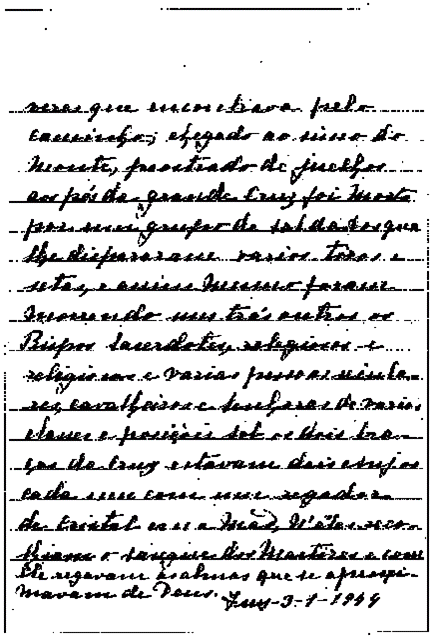 veres que encontrava pelo
caminho; chegado ao simo do
monte, prostrado de juelhos
aos pés da grande Cruz foi morto
por um grupo de soldados que
lhe dispararam varios tiros e
setas, e assim mesmo foram
morrendo uns trás outros os
Bispos Sacerdotes, religiosos e
religiosas e varias pessoas secula-
res, cavalheiros e senhoras de varias
classes e posições. Sob os dois bra-
ços da Cruz estavam dois anjos
cada um com um regador
de cristal em a mão, N'êles reco-
lhiam o sangue dos Martires e com
êle regavam as almas que se aproxi-
mavam de Deus.
Tuy-3-1-1944